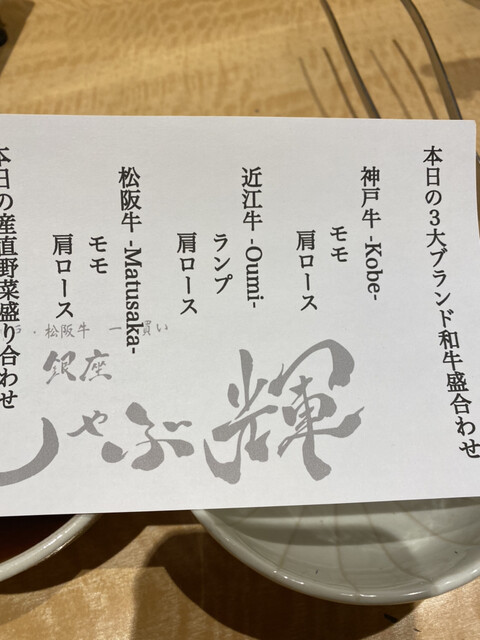 本日の3大ブランド和牛盛合わせ
神戸牛 -Kobe-
モモ
肩ロース
近江牛 -Oumi-
ランプ
肩ロース
松阪牛 -Matusaka-
モモ
肩ロース
本日の産直野菜盛り合わせ
戸・松阪牛 一 買い
銀座
しゃぶ輝